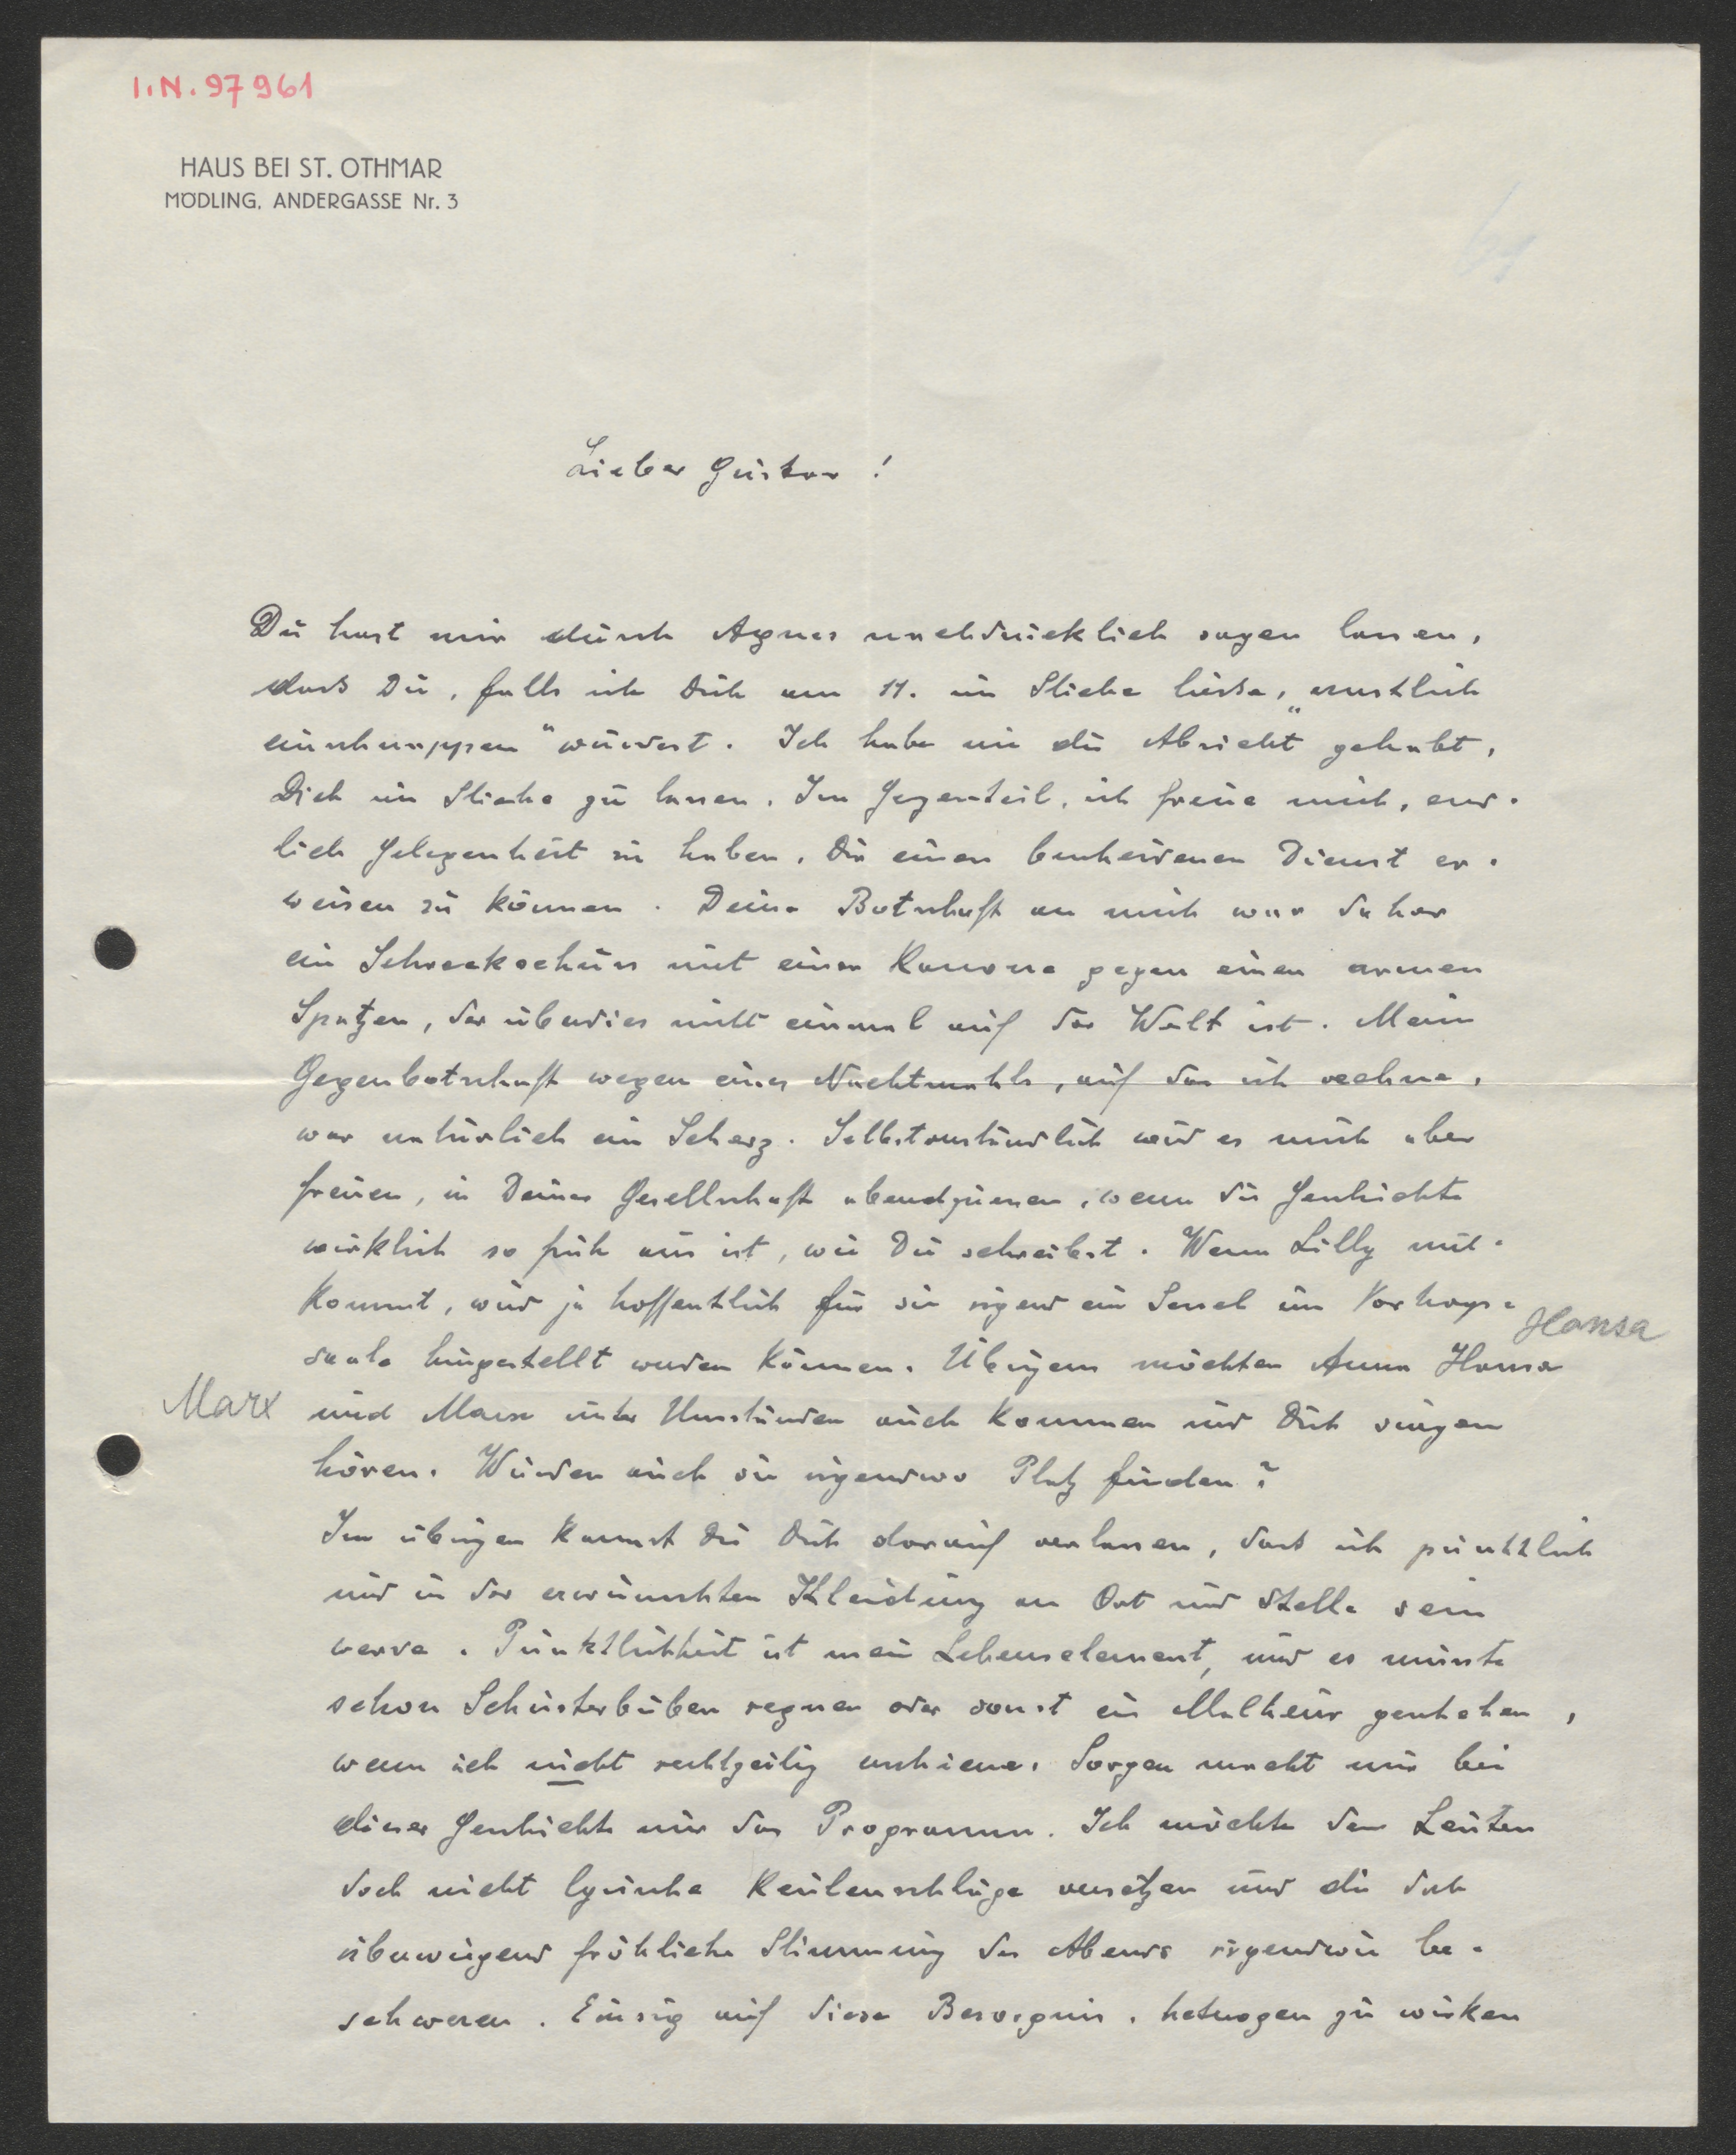 I.N. 97961
HAUS BEI ST. OTHMAR
MÖDLING, ANDERGASSE Nr. 3
Lieber Gustav!
Du hast mir durch Agnes nachdrücklich sagen lassen,
dass Du, falls ich Dich am 11. im Stiche liesse, „ernstlich
einschnappen“ würdest. Ich habe nie die Absicht gehabt,
Dich im Stiche zu lassen. Im Gegenteil, ich freue mich, end-
lich Gelegenheit zu haben, Dir einen bescheidenen Dienst er-
weisen zu können. Deine Botschaft an mich war daher
ein Schreckschuss mit einer Kanone gegen einen armen
Spatzen, der überdies nicht einmal auf der Welt ist. Mein
Gegenbotschaft wegen eines Nachtmahls, auf das ich rechne,
war natürlich ein Scherz. Selbstverständlich wird es mich aber
freuen, in Deiner Gesellschaft abendzuessen, wenn die Geschichte
wirklich so früh aus ist, wie Du schreibst. Wenn Lilly mit-
kommt, wird ja hoffentlich für sie irgend ein Sessel im Vortrags-
saale hingestellt werden können. Übrigens möchten Anna Hansa
Hansa
Marx
und Marx unter Umständen auch kommen und Dich singen
hören. Würden auch sie irgendwo Platz finden?
Im übrigen kannst Du Dich darauf verlassen, dass ich pünktlich
und in der erwünschten Kleidung an Ort und Stelle sein
werde. Pünktlichkeit ist mein Lebenselement, und es müsste
schon Schusterbuben regnen oder sonst ein Malheur geschehen,
wenn ich nicht rechtzeitig erschiene. Sorgen macht mir bei
dieser Geschichte nur das Programm. Ich möchte den Leuten
doch nicht lyrische Keulenschläge versetzen und die doch
überwiegend fröhliche Stimmung des Abends irgendwie be-
schweren. Einzig auf diese Besorgnis, heterogen zu wirken